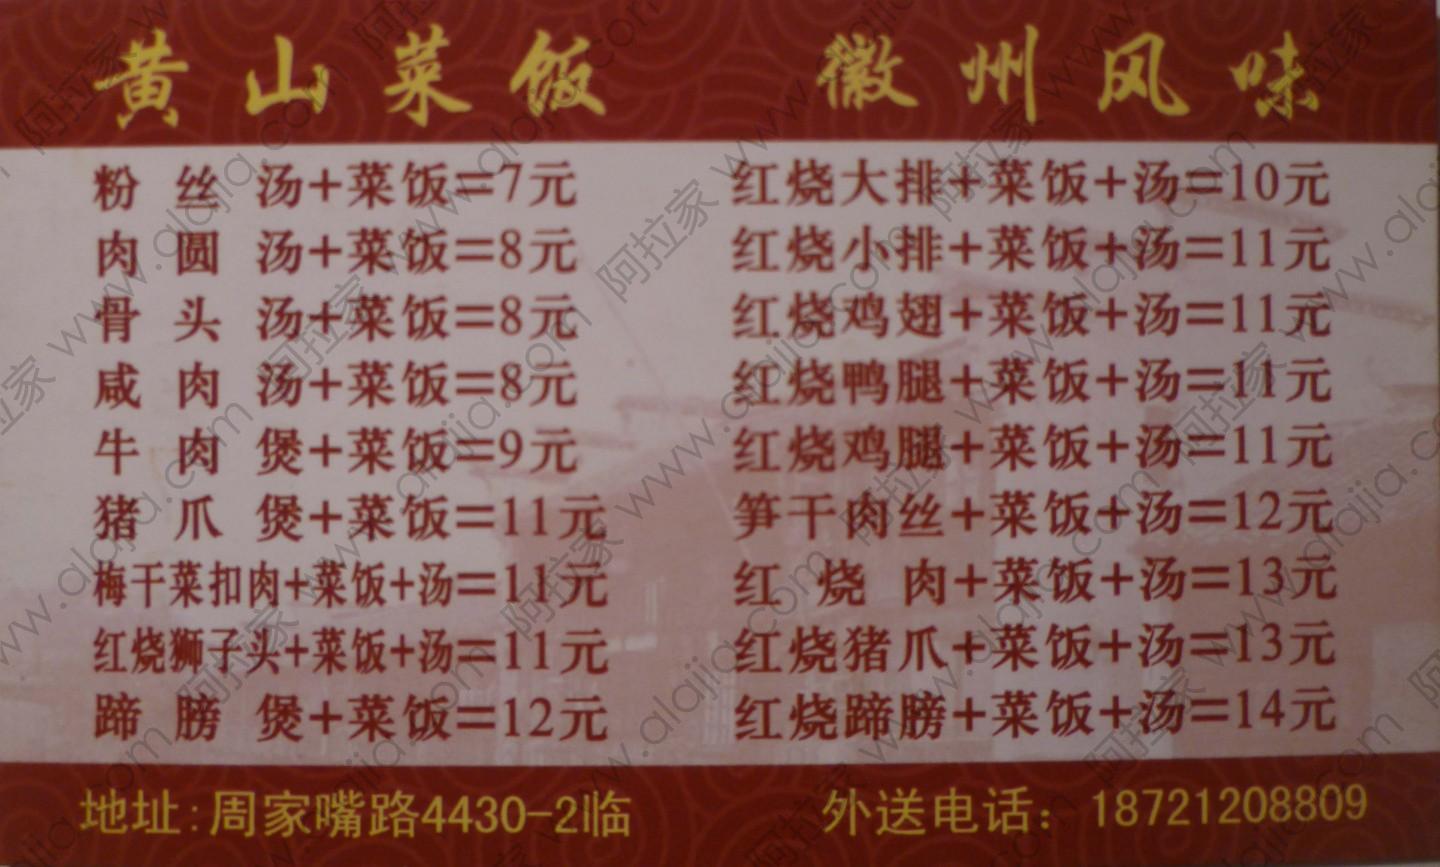 黄山菜饭 徽州风味
粉丝汤+菜饭=7元
肉圆汤+菜饭=8元
骨头汤+菜饭=8元
咸肉汤+菜饭=8元
牛肉煲+菜饭=9元
猪爪煲+菜饭=11元
梅干菜扣肉+菜饭+汤=11元
红烧狮子头+菜饭+汤=11元
蹄膀煲+菜饭=12元
红烧大排+菜饭+汤=10元
红烧小排+菜饭+汤=11元
红烧鸡翅+菜饭+汤=11元
红烧鸭腿+菜饭+汤=11元
红烧鸡腿+菜饭+汤=11元
笋干肉丝+菜饭+汤=12元
红烧肉+菜饭+汤=13元
红烧猪爪+菜饭+汤=13元
红烧蹄膀+菜饭+汤=14元
地址:周家嘴路4430-2临
外送电话：18721208809
阿拉家 www.alajia.com